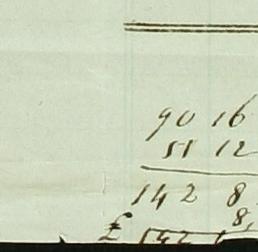 90 16
51 12
142 8
8
£ 142